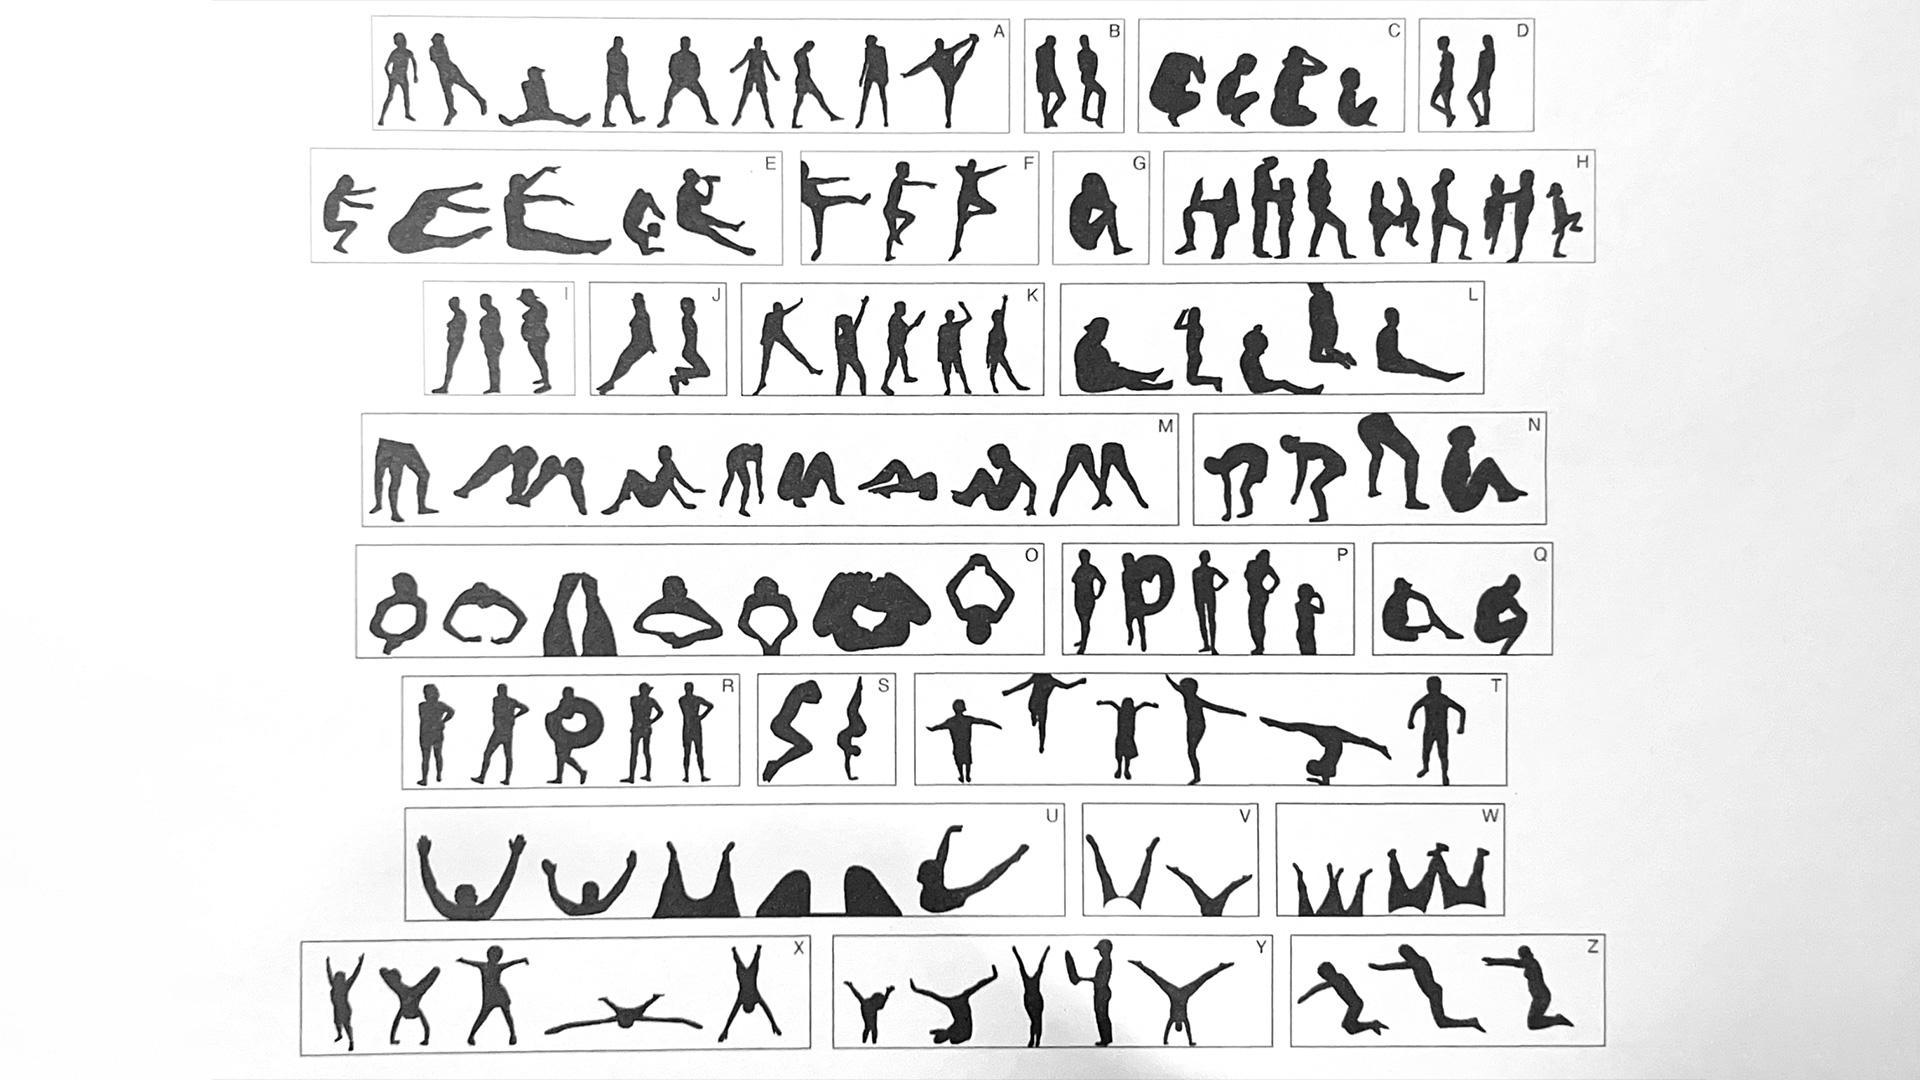 A B C D
E F G H
I J K L
M N
O P Q
R S T
U V W
X Y Z